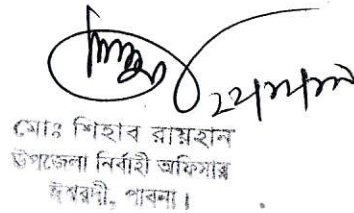 মোঃ শিহাব রায়হান
উপজেলা নির্বাহী অফিসার
ঈশ্বরদী, পাবনা।